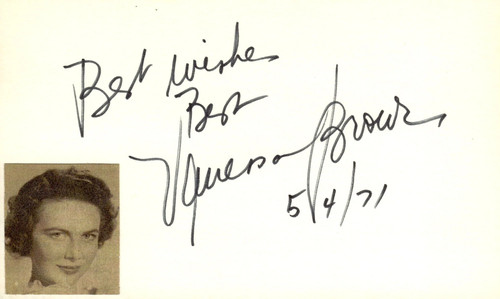 Best wishes
Best
Vanessa Brown
5/4/71